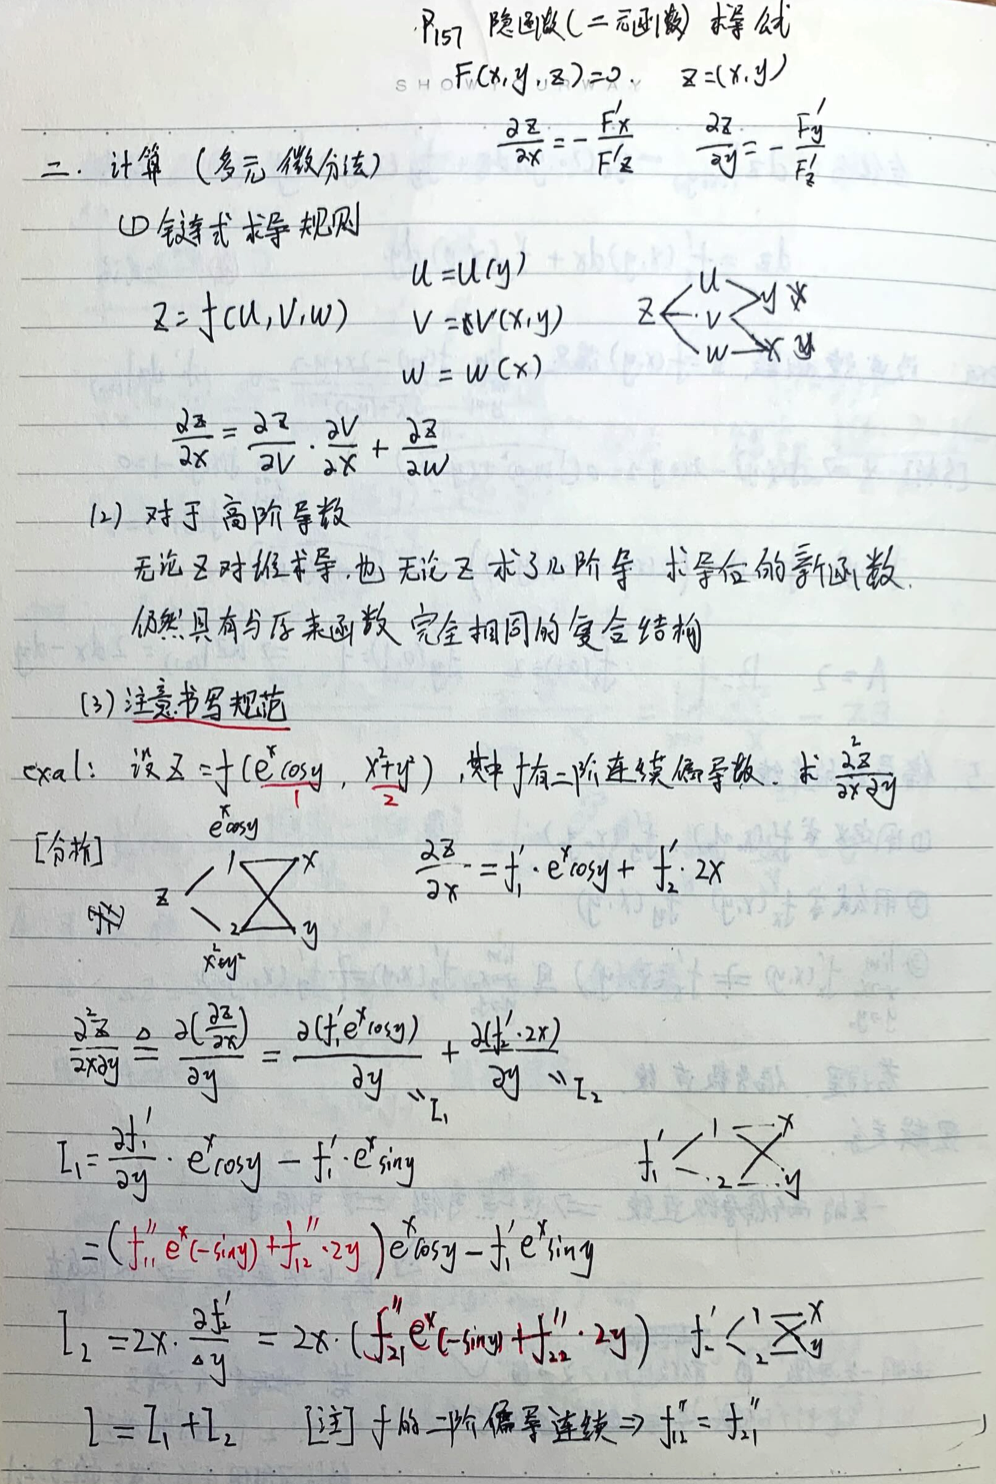 P157 隐函数(二元函数) 求导公式
SHOW YOUR WAY
F(x,y,z)=0. z=(x,y)
∂z/∂x = - F'x/F'z ∂z/∂y = - F'y/F'z
二. 计算 (多元微分法)
(1) 链式求导规则
Z=f(u,v,w)
u=u(y)
v=v(x,y)
w=w(x)
z u v w y x
∂z/∂x = ∂z/∂v · ∂v/∂x + ∂z/∂w
(2) 对于高阶导数
无论z对谁求导,也无论z求了几阶导 求导后的新函数.
仍然具有与原来函数完全相同的复合结构
(3) 注意书写规范
exal: 设z=f(e^x cosy, x²+y²),其中f有二阶连续偏导数. 求 ∂²z/∂x∂y
1 2
[分析]
e^x cosy
z 1 2 x y
x²+y²
∂z/∂x = f'1·e^x cosy + f'2·2x
∂²z/∂x∂y ≜ ∂(∂z/∂x)/∂y = ∂(f'1 e^x cosy)/∂y + ∂(f'2·2x)/∂y
I1 I2
I1 = ∂f'1/∂y · e^x cosy - f'1·e^x siny
f'1 1 2 x y
=(f''11 e^x(-siny)+f''12·2y)e^x cosy - f'1 e^x siny
I2 = 2x·∂f'2/∂y = 2x·(f''21 e^x(-siny)+f''22·2y) f'2 1 2 x y
I=I1+I2 [注] f的二阶偏导连续⇒f''12=f''21